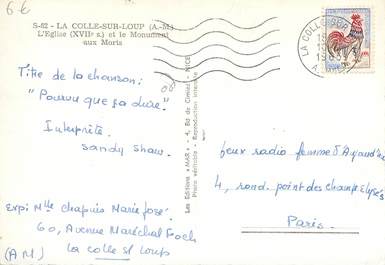 6€
S-82 - LA COLLE-SUR-LOUP (A.-M.)
L'Eglise (XVIIe s.) et le Monument
aux Morts
Titre de la chanson:
"Pourvu que ça dure"
Interprète
sandy shaw.
Exp: Mlle chapuis Marie José
60, Avenue Maréchal Foch
la colle st loup
(AM)
Les Editions "MAR" - 4, Bd de Cimiez - NICE
Reproduction interdite
LA COLLE
Jeux radio femme d'Aujourd'hui
4, rond. point des champs Elysés
Paris